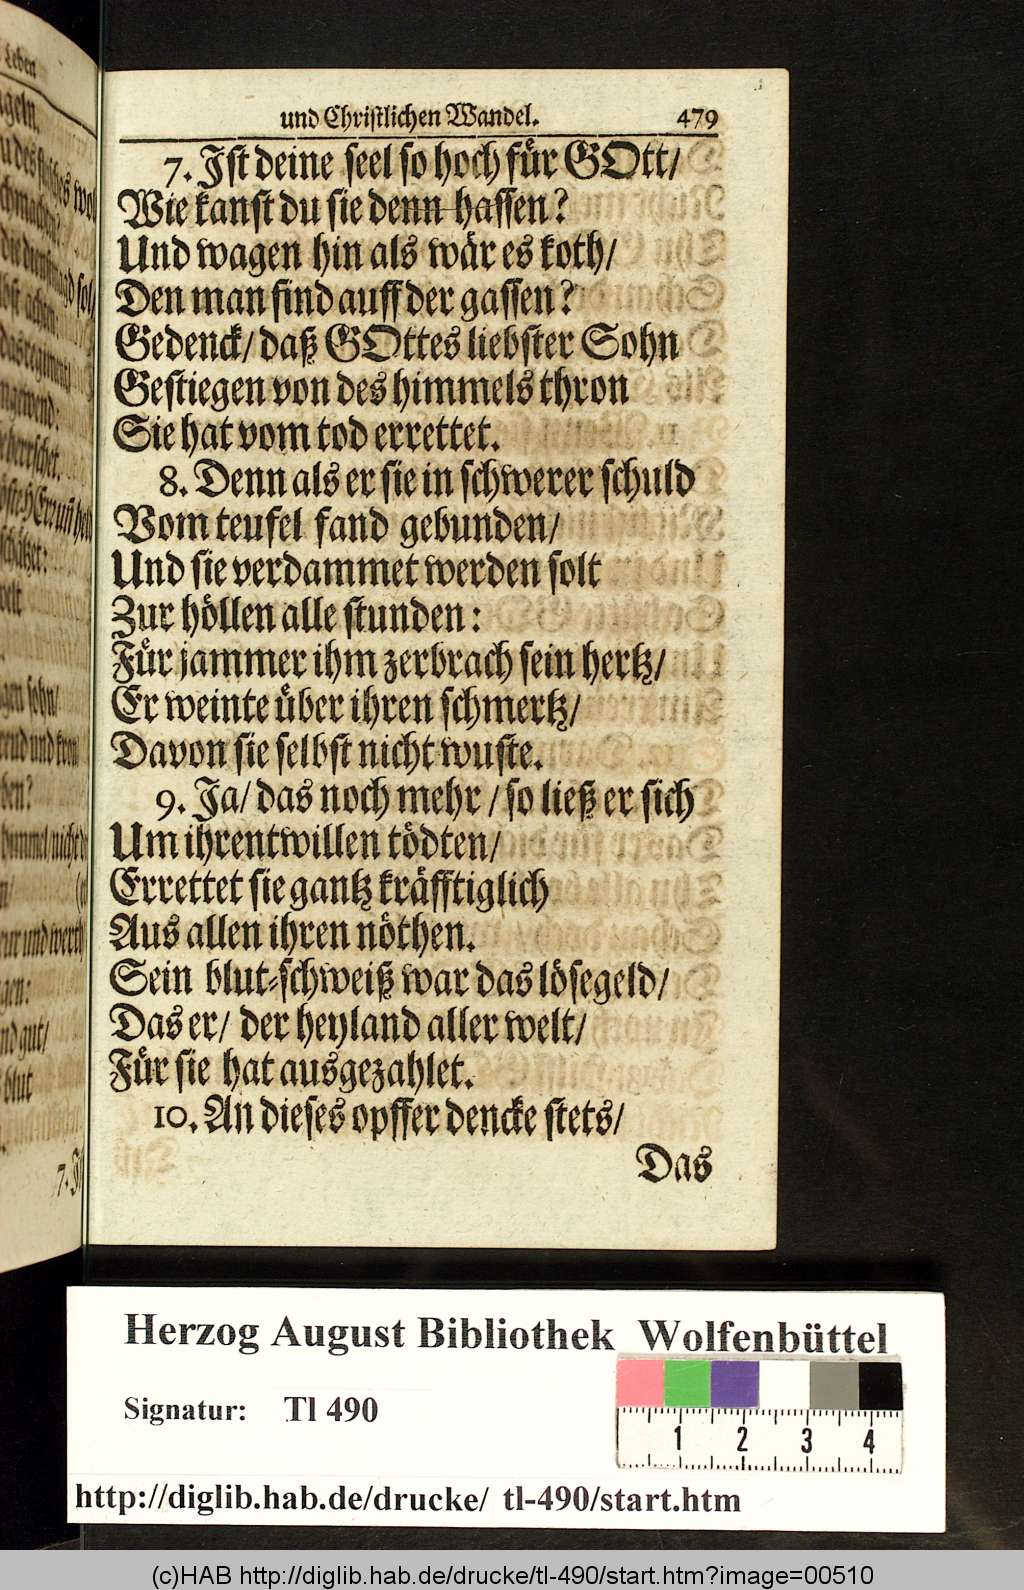 und Christlichen Wandel. 479
7. Ist deine seel so hoch für GOtt/
Wie kanst du sie denn hassen?
Und wagen hin als wär es koth/
Den man find auff der gassen?
Gedenck/ daß GOttes liebster Sohn
Gestiegen von des himmels thron
Sie hat vom tod errettet.
8. Denn als er sie in schwerer schuld
Vom teufel fand gebunden/
Und sie verdammet werden solt
Zur höllen alle stunden:
Für jammer ihm zerbrach sein hertz/
Er weinte über ihren schmertz/
Davon sie selbst nicht wuste.
9. Ja/ das noch mehr / so ließ er sich
Um ihrentwillen tödten/
Errettet sie gantz kräfftiglich
Aus allen ihren nöthen.
Sein blut-schweiß war das lösegeld/
Das er/ der heyland aller welt/
Für sie hat ausgezahlet.
10. An dieses opffer dencke stets/
Das
Herzog August Bibliothek Wolfenbüttel
Signatur: Tl 490
1 2 3 4
http://diglib.hab.de/drucke/ tl-490/start.htm
(c)HAB http://diglib.hab.de/drucke/tl-490/start.htm?image=00510